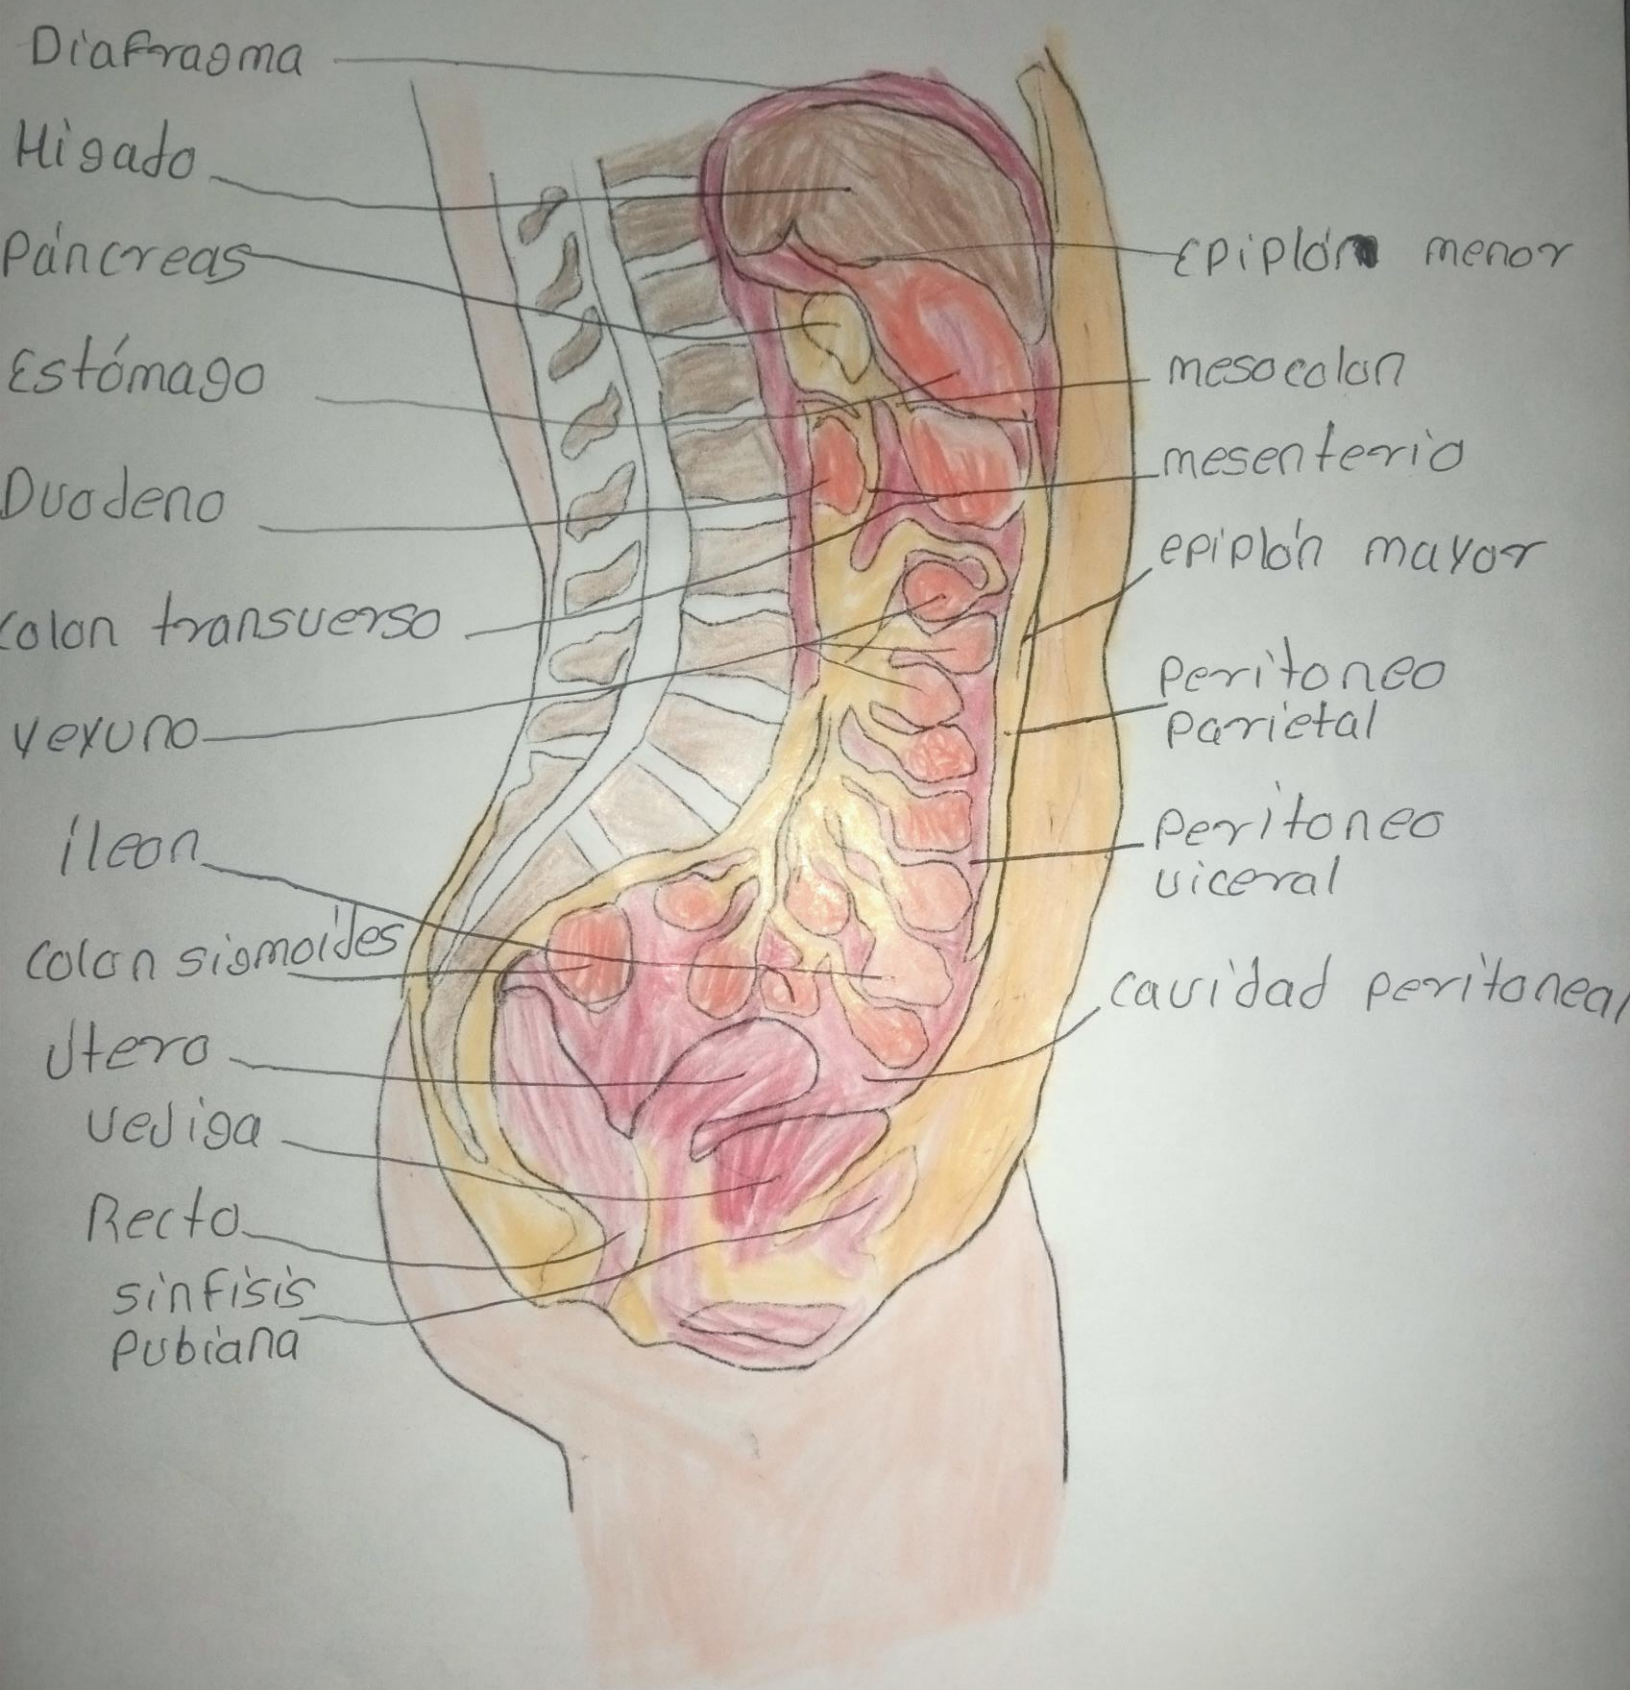 Diafragma
Higado
Páncreas
Estómago
Duodeno
Colon transverso
yeyuno
íleon
Colon sigmoides
Utero
vejiga
Recto
sinfisis
Pubiana
Epiplón menor
mesocolon
mesenterio
epiplón mayor
Peritoneo
parietal
Peritoneo
viceral
cavidad peritoneal